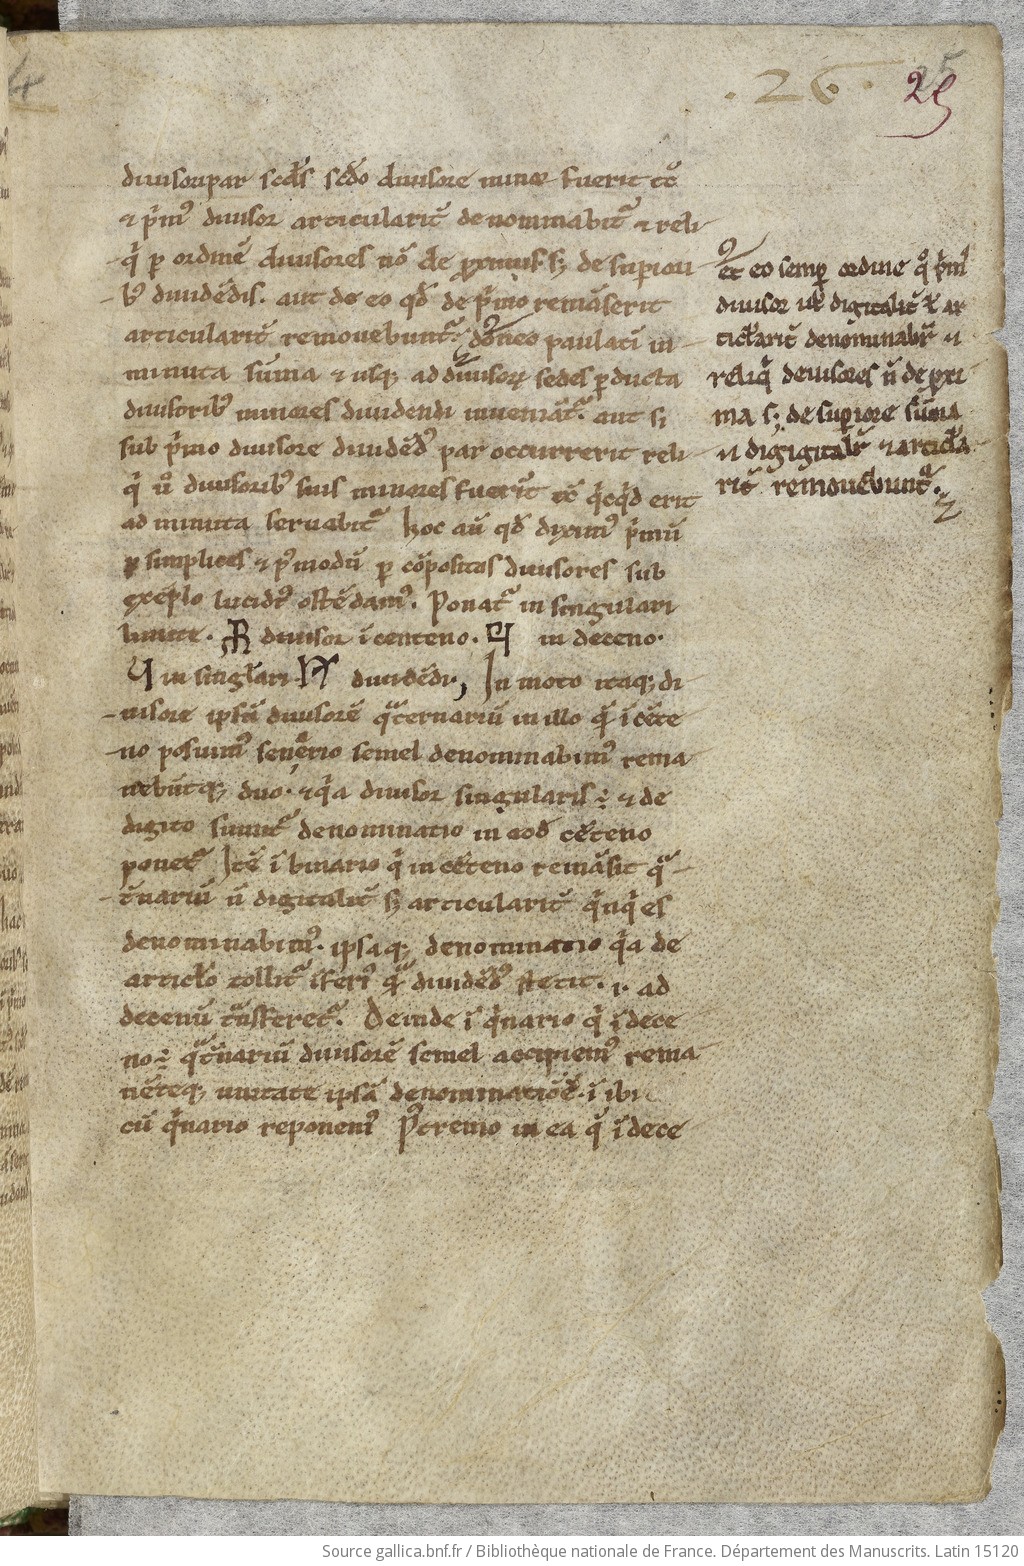 .26. 25
diuisori par scd's scdo diuisore minor fuerit tc̄
⁊ p̄m' diuisor articularit̄ denominabit̄ ⁊ reli
q̄ p ordinē diuisores nō de proximis s; de superiori
b' diuidēdis. aut de eo qd̄ de p̄mo remāserit
articularit̄ remouebunt̄. donec paulati in
minuta sūma ⁊ usq; ad diuisorꝝ sedes pducta
diuisorib' minores diuidendi inueniāt̄. aut s;
sub p̄mo diuisore diuidēd' par occurrerit reli
q̄ ů diuisorib' suis minores fuerīt tc̄ q̄cq̄d erit
ad minuta seruabit̄ hoc aū qd̄ diximus p̄mū
p simplices ⁊ p'modū p cōpositas diuisores sub
exēplo lucidi' ostēdam'. Ponat̄ in singulari
limite. diuisor ī centeno. in deceno.
in singlari diuidēdi, In moto itaq; di
uisore ipsū diuisorē q̄ternariū in illo q̄ ī cēte
no posuim' senario semel denominabim' rema
nebūtq; duo. ⁊ q̄a diuisor singularis ÷ ⁊ de
digito sumit̄ denominatio in eod̄ cēteno
ponet̄ Itē ī binario q̄ in cēteno remāsit q̄
t̄nariū n̄ digitalit̄ s; articularit̄ q̄nq̄es
denominabim'. ipsaq; denominatio q̄a de
articlo tollit̄ īferi' q̄ diuidēd' stetit. i. ad
decenū t̄nsferet̄. Deinde ī q̄nario q̄ ī dece
no ÷ q̄t̄nariū diuisorē semel accipiem' rema
nēteq; unitate ipsā denominatiōē ī ibi
cū q̄nario reponem' Postremo in ea q̄ ī dece
et eo semp ordine qo p̄m'
diuisor ul' digitalit̄ ł ar
ticlarit̄ denominabit̄ ⁊
reliq̄ deuisores n̄ de proxi
ma s; de superiore sūma
⁊ digigitalit̄ ⁊ articla
rit̄ remouebunt̄.
Source gallica.bnf.fr / Bibliothèque nationale de France. Département des Manuscrits. Latin 15120